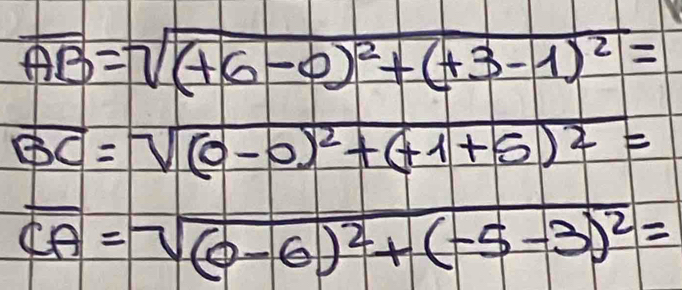 AB̅ = √(+6-0)²+(+3-1)² =
BC̅ = √(0-0)²+(+1+5)² =
CA̅ = √(0-6)²+(-5-3)² =